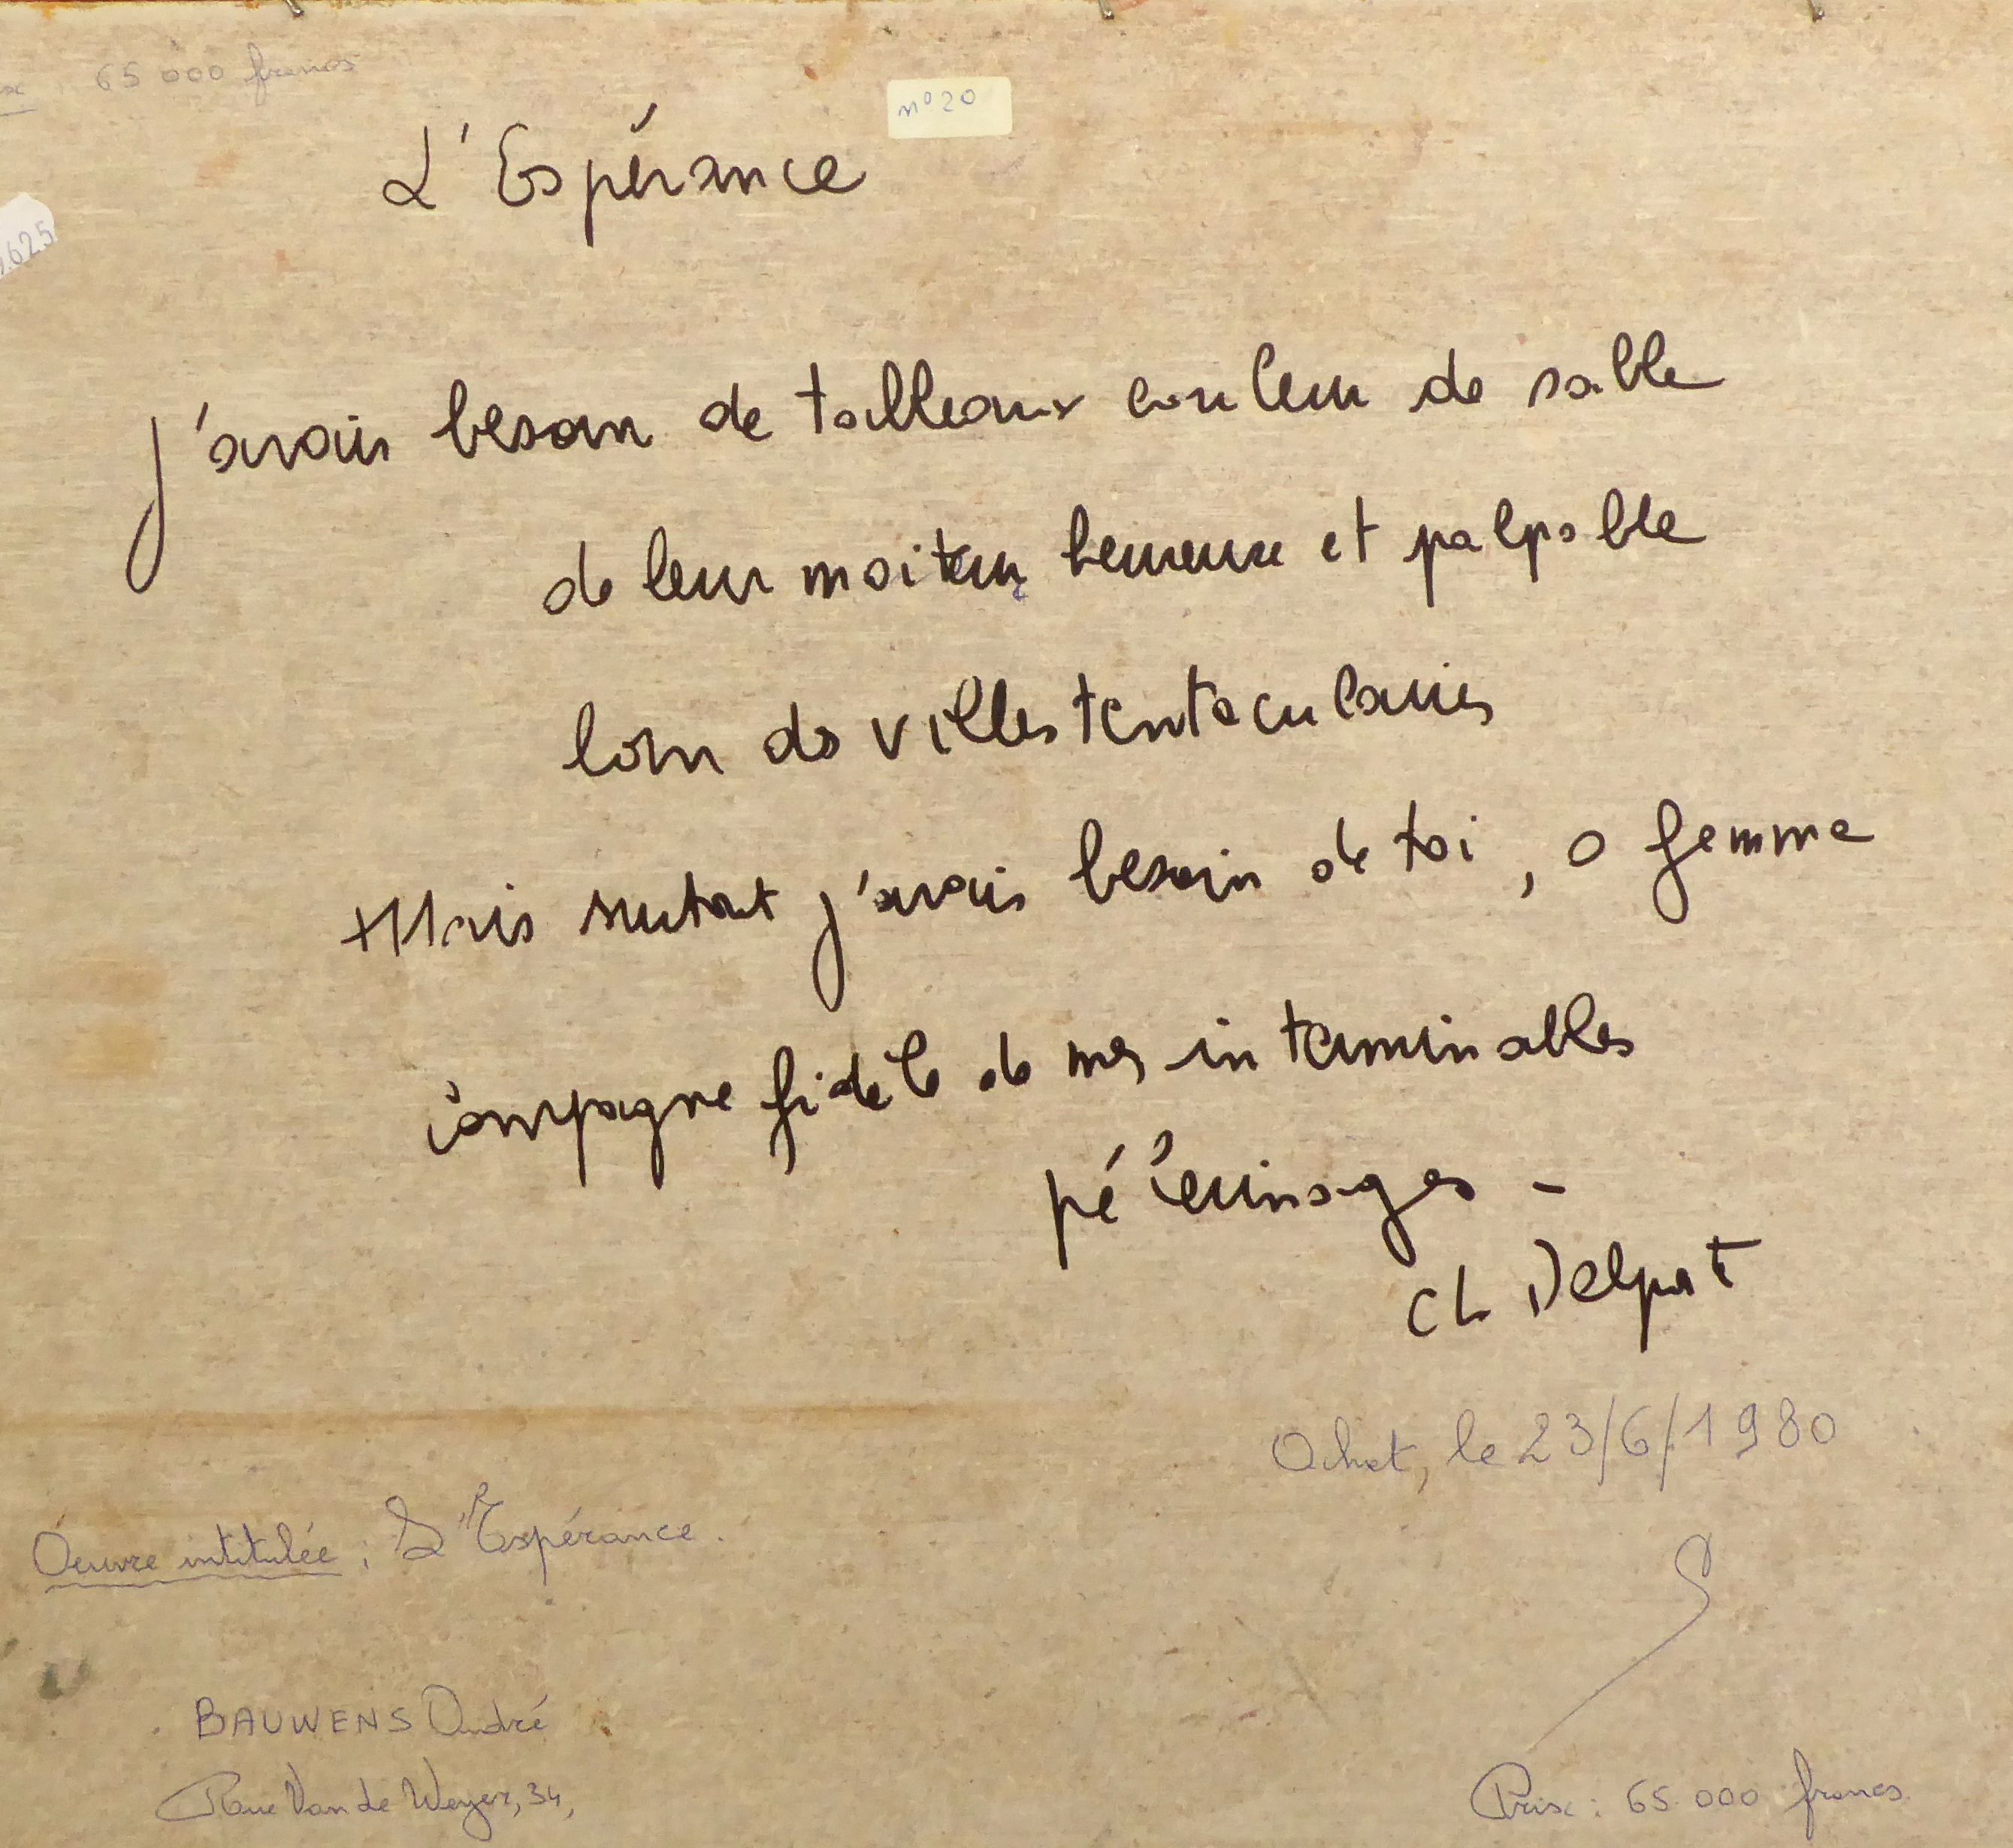 65 000 francs
n° 20
L'Espérance
625
j'avais besoin de tableaux couleur de sable
de leur moiteur heureuse et palpable
loin des villes tentaculaires
Mais surtout j'avais besoin de toi, o femme
compagne fidèle de mes interminables
pélérinages -
Ch Delpat
Achat, le 23/6/1980
Oeuvre intitulée : L'Espérance.
BAUWENS André
Rue Van de Weyer, 34,
Prix : 65 000 francs